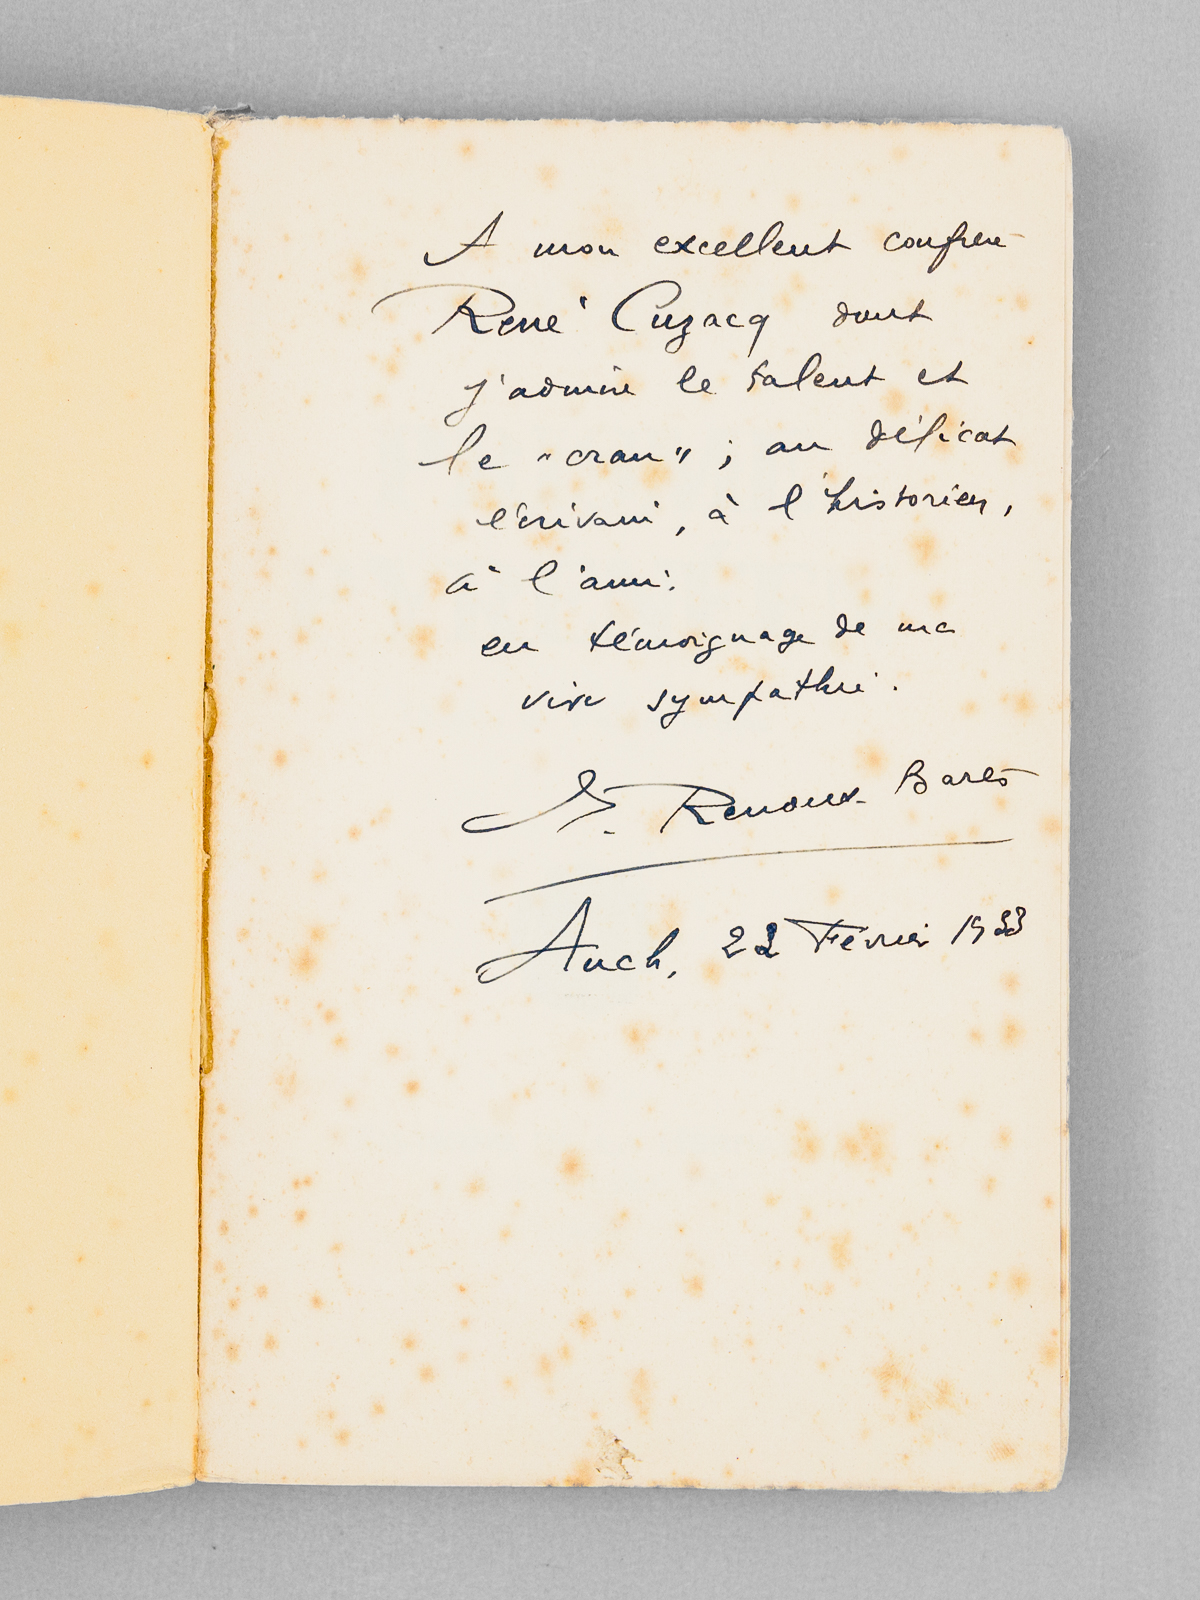 A mon excellent confrère
René Cuzacq dont
j'admire le talent et
le "cran" ; au délicat
écrivain, à l'historien,
à l'ami.
en témoignage de ma
vive sympathie.
Renoux-Barès
Auch, 22 Février 1933